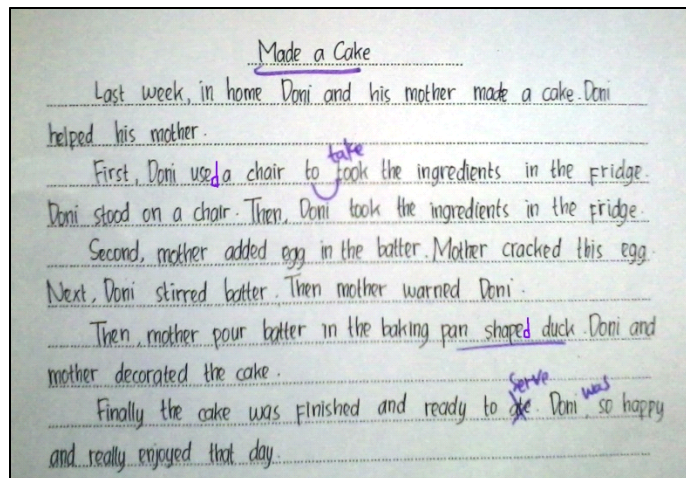 Made a Cake
Last week, in home Doni and his mother made a cake. Doni
helped his mother.
take
First, Doni used a chair to took the ingredients in the fridge.
Doni stood on a chair. Then, Doni took the ingredients in the fridge.
Second, mother added egg in the batter. Mother cracked this egg.
Next, Doni stirred batter. Then mother warned Doni.
Then, mother pour batter in the baking pan shaped duck. Doni and
mother decorated the cake.
serve was
Finally the cake was finished and ready to ate. Doni, so happy
and really enjoyed that day.